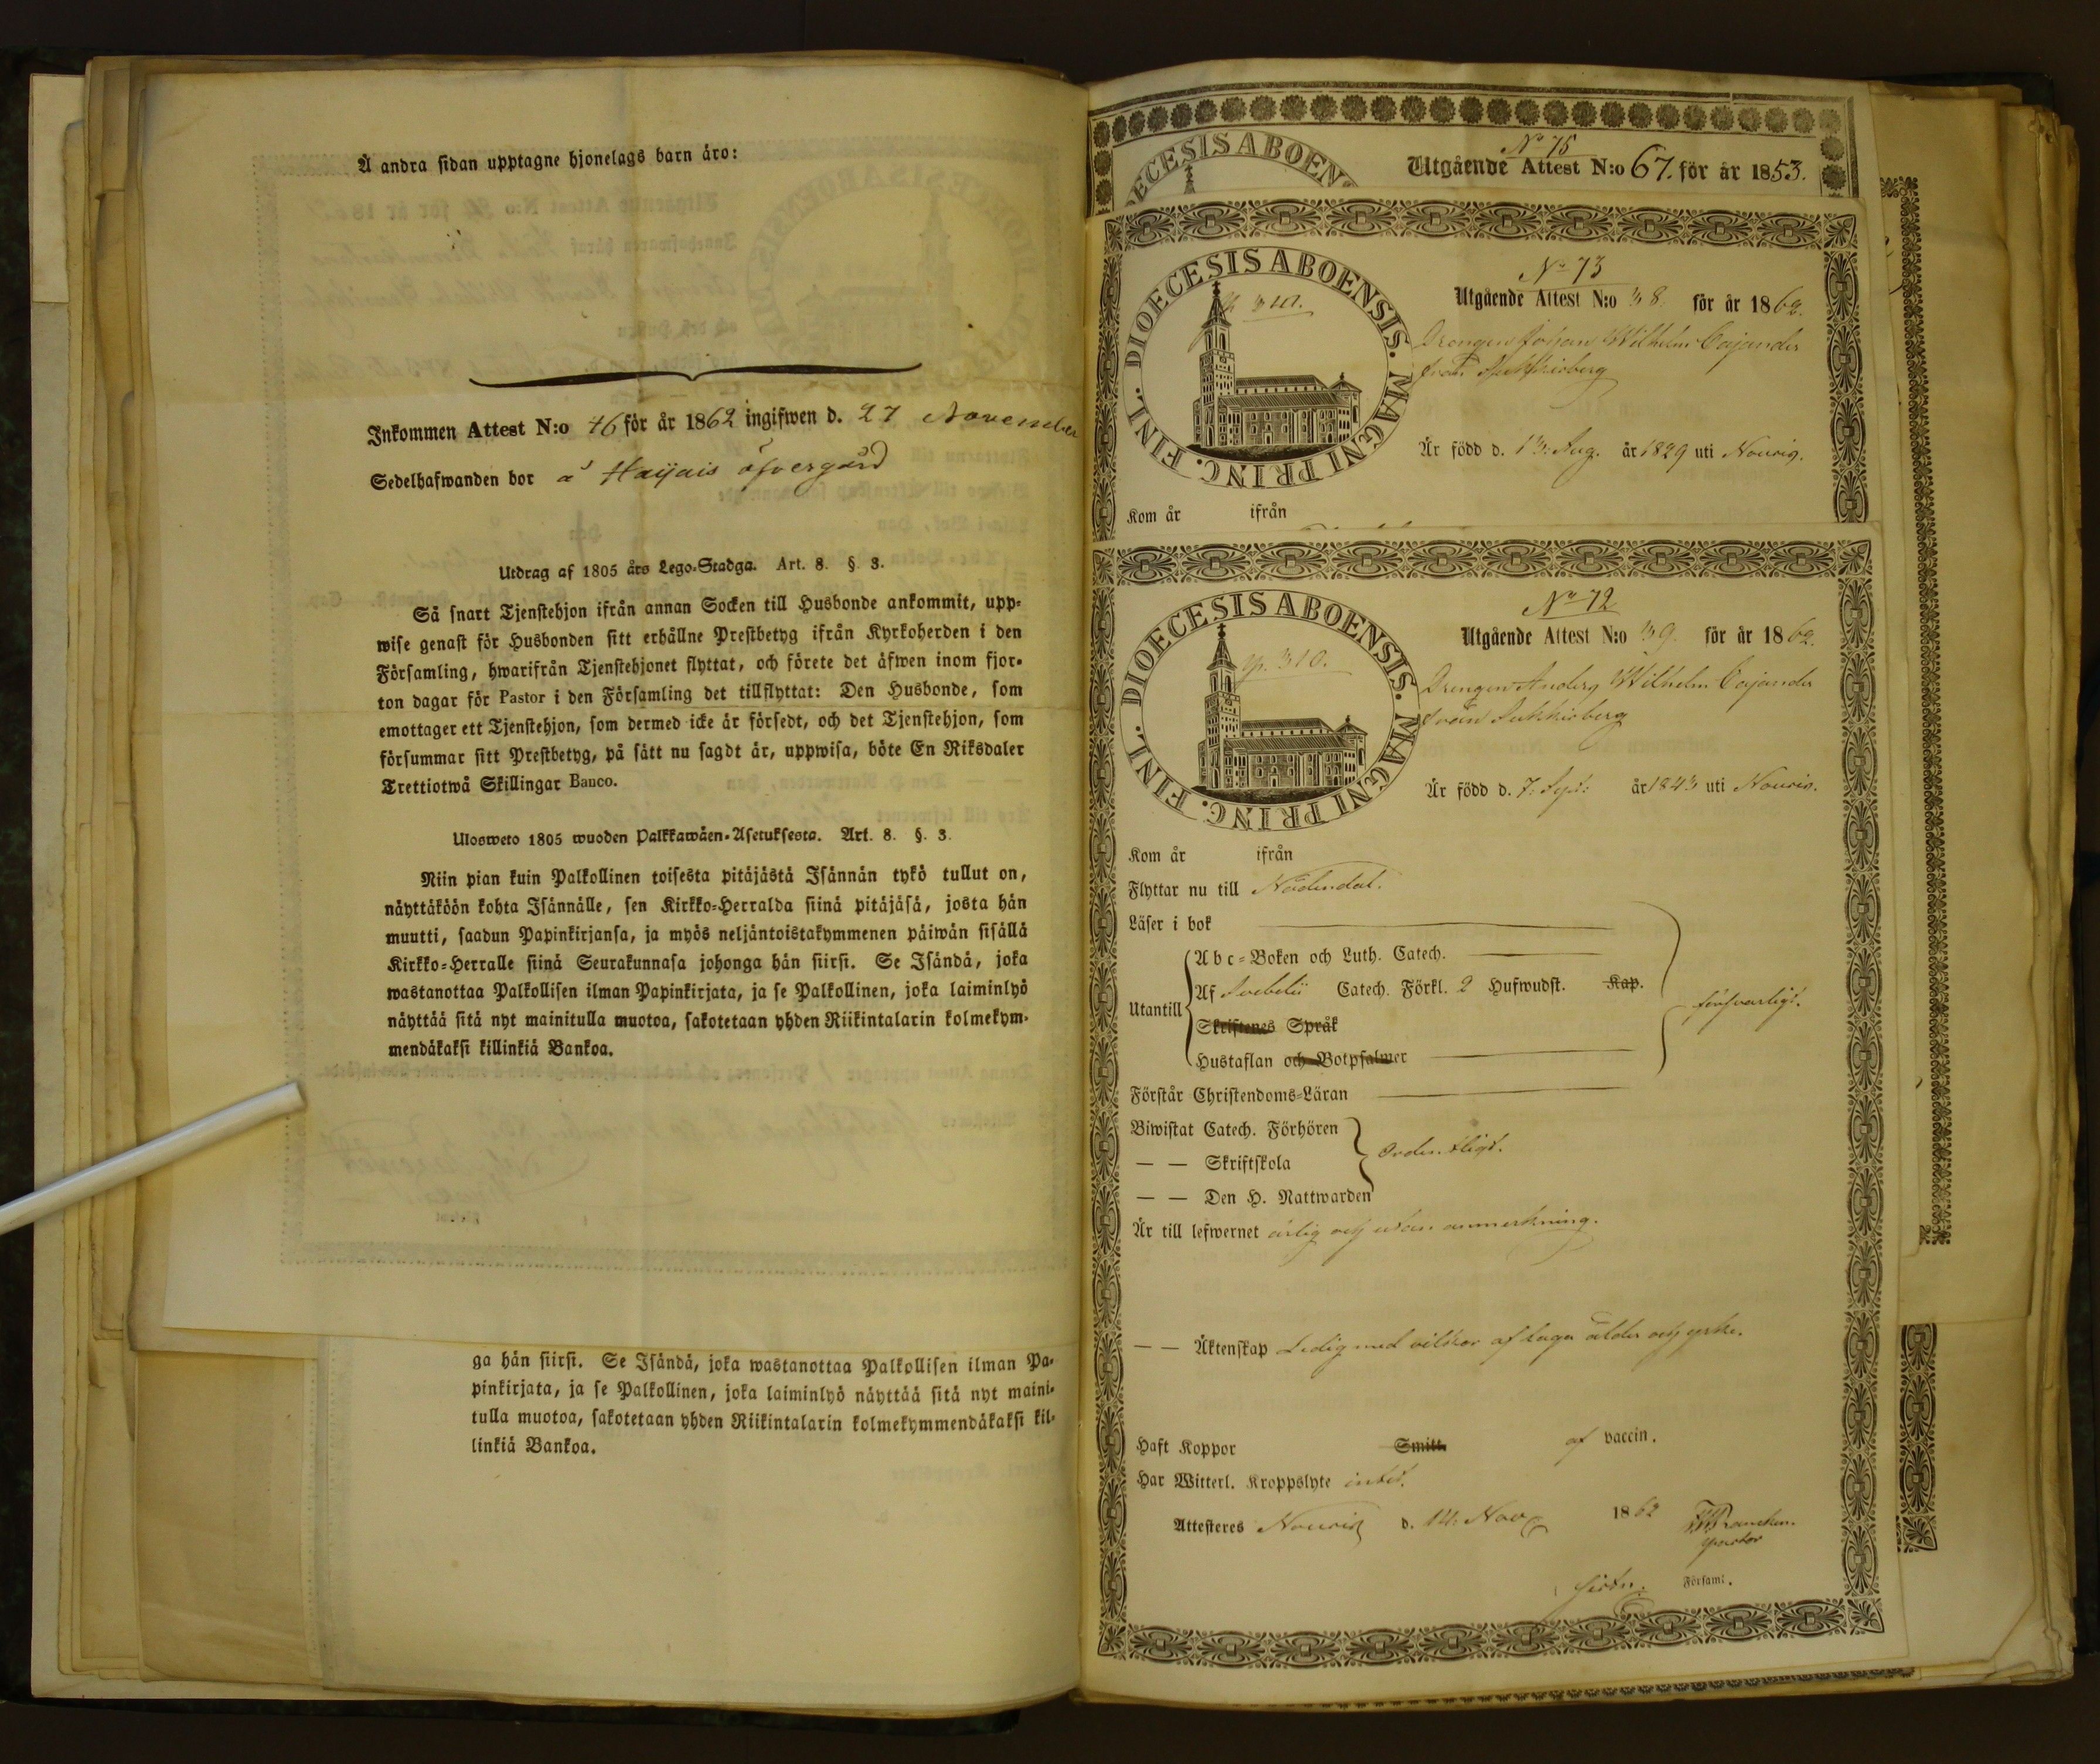 Å andra sidan upptagne hjonelags barn äro:
Inkommen Attest N:o 46 för år 1862 ingifwen d. 27 November
Sedelhafwanden bor å Haijais öfvergård
Utdrag af 1805 års Lego-Stadga. Art. 8. §. 3.
Så snart Tjenstehjon ifrån annan Socken till Husbonde ankommit, upp-
wise genast för Husbonden sitt erhållne Prestbetyg ifrån Kyrkoherden i den
Församling, hwarifrån Tjenstehjonet flyttat, och förete det äfwen inom fjor-
ton dagar för Pastor i den Församling det tillflyttat: Den Husbonde, som
emottager ett Tjenstehjon, som dermed icke är försedt, och det Tjenstehjon, som
försummar sitt Prestbetyg, på sätt nu sagdt är, uppwisa, böte En Riksdaler
Trettiotwå Skillingar Banco.
Ulosweto 1805 wuoden Palkkawäen-Asetuksesta. Art. 8. §. 3.
Niin pian kuin Palkollinen toisesta pitäjästä Isännän tykö tullut on,
näyttäköön kohta Isännälle, sen Kirkko-Herralda siinä pitäjäsä, josta hän
muutti, saadun Papinkirjansa, ja myös neljäntoistakymmenen päiwän sisällä
Kirkko-Herralle siinä Seurakunnasa johonga hän siirsi. Se Isändä, joka
wastanottaa Palkollisen ilman Papinkirjata, ja se Palkollinen, joka laiminlyö
näyttää sitä nyt mainitulla muotoa, sakotetaan yhden Riikintalarin kolmekym-
mendäkaksi killinkiä Bankoa.
ga hän siirsi. Se Isändä, joka wastanottaa Palkollisen ilman Pa-
pinkirjata, ja se Palkollinen, joka laiminlyö näyttää sitä nyt maini-
tulla muotoa, sakotetaan yhden Riikintalarin kolmekymmendäkaksi kil-
linkiä Bankoa.
No 75
Utgående Attest N:o 67. för år 1853.
DIOECESIS ABOENSIS. MAGNI PRINC. FINL.
p. 310.
No 73
Utgående Attest N:o 38. för år 1862.
Drengen Johan Wilhelm Cajander
från
Är född d. 13. Aug. år 1829 uti Nousis.
Kom år ifrån
DIOECESIS ABOENSIS. MAGNI PRINC. FINL.
p. 310.
No 72
Utgående Attest N:o 39. för år 1862.
Drengen Anders Wilhelm Cajander
från
Är född d. 7. Sept. år 1843 uti Nousis.
Kom år ifrån
Flyttar nu till Nådendal.
Läser i bok
Utantill
Abc-Boken och Luth. Catech.
Af Svebelii Catech. Förkl. 2 Hufwudst. Kap.
Skriftenes Språk
Hustaflan och Botpsalmer
försvarligt.
Förstår Christendoms-Läran
Biwistat Catech. Förhören
— — Skriftskola
— — Den H. Nattwarden
Ordentligt.
Är till lefwernet ärlig och utan anmerkning.
— — Äktenskap Ledig med vilkor af laga ålder och yrke.
Haft Koppor Smitt. af vaccin.
Har Witterl. Kroppslyte intet.
Attesteres Nousis d. 14. Nov 1862
pastor
Församl.